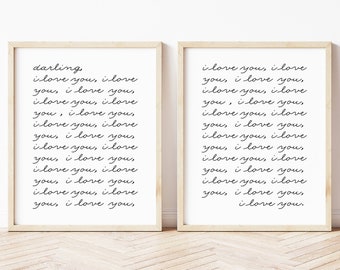 darling,
i love you, i love
you, i love you,
i love you, i love
you , i love you,
i love you, i love
you, i love you,
i love you, i love
you, i love you,
i love you, i love
you, i love you,
i love you, i love
you, i love you,
i love you, i love
you, i love you,
i love you, i love
you , i love you,
i love you, i love
you, i love you,
i love you, i love
you, i love you,
i love you, i love
you, i love you,
i love you, i love
you, i love you,
i love you.